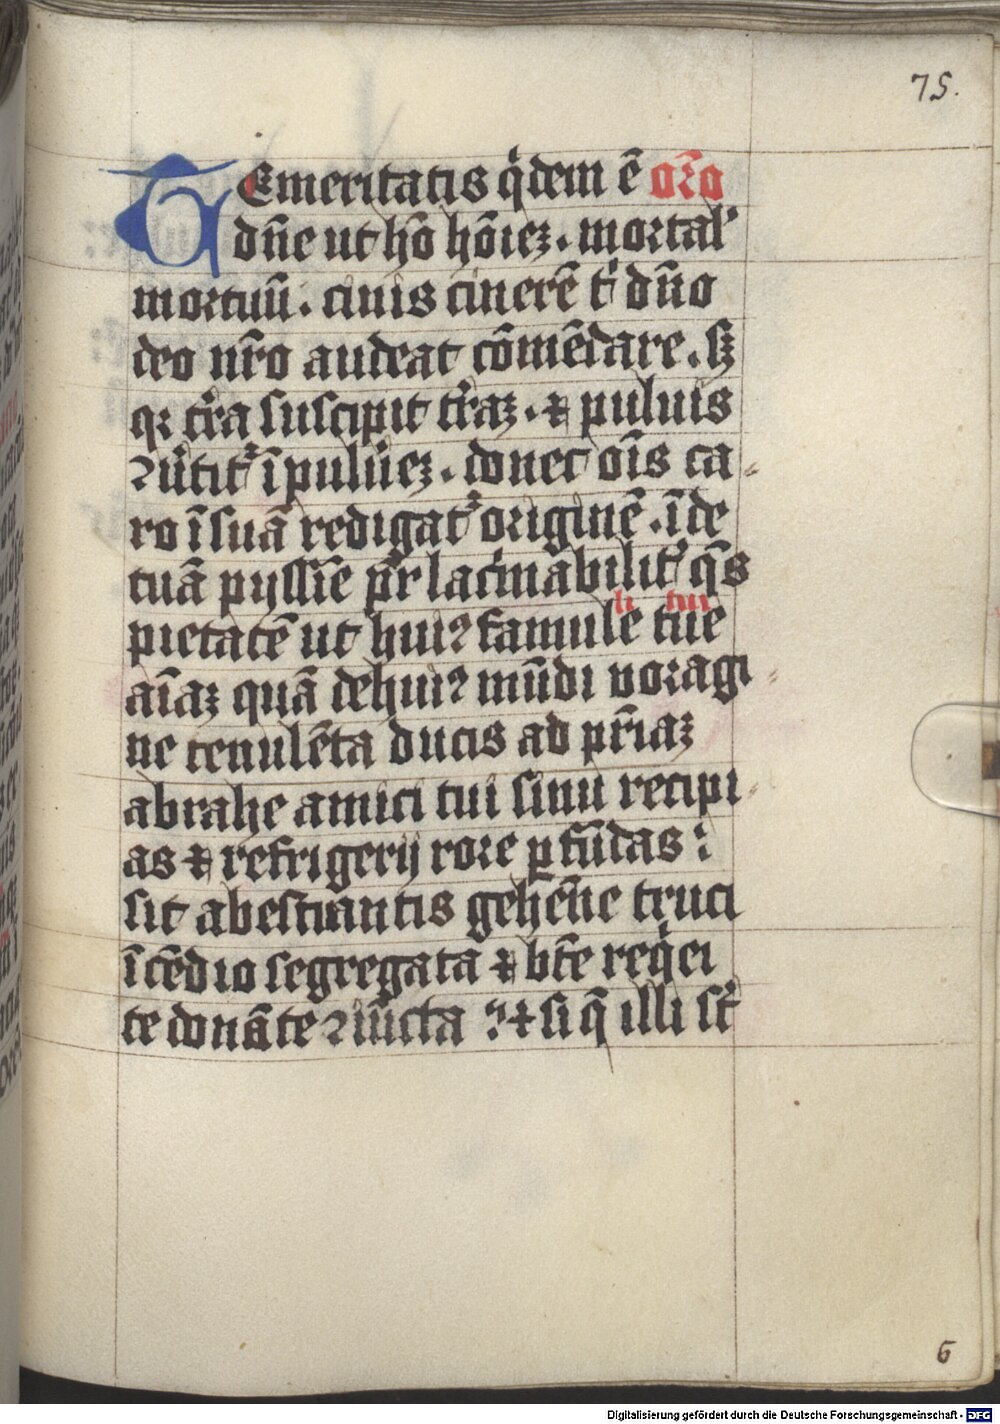 75.
Temeritatis q̇dem ē or̄o
dn̄e ut hō hōīeꝫ . mortal'
mortuū . cinis cinerē t' dn̄o
deo nr̄o audeat cōmēdare . sꝫ
qꝛ t'ra suscipit t'raꝫ . ⁊ puluis
ꝯu'tit' ī pulu'eꝫ . donec oīs ca
ro ī suā redigat' originē . īde
tuā pijssīe pr̄ lac'mabilit' qs̄
pietatē ut huiꝰ famule tue
li tui
aīaꝫ quā de huiꝰ mūdi voragi
ne cenulēta ducis ad pr̄iaꝫ
abrahe amici tui sinu recipi
as ⁊ refrigerij rore ꝑfūdas :
sit ab estuantis gehēne truci
īcēdio segregata ⁊ bt̄e reqi̇ei
te donāte ꝯiūcta : ⁊ si q̄ illi st'
6
Digitalisierung gefördert durch die Deutsche Forschungsgemeinschaft - DFG